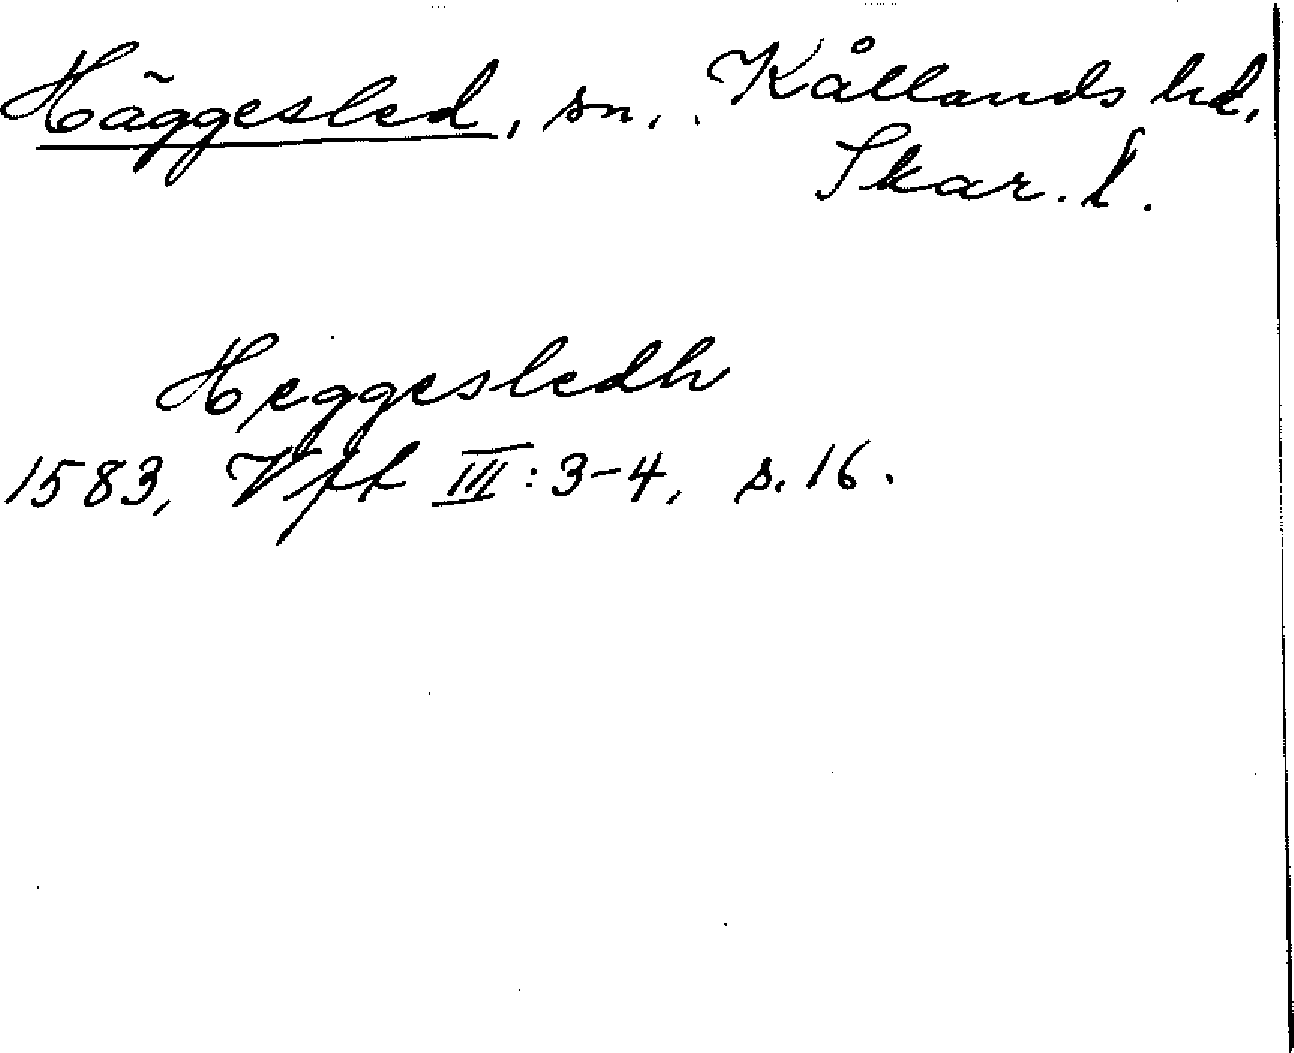 Häggesled, sn., Kållands hd,
Skar. l.
Heggesledh
1583, Vft III:3-4, s. 16.